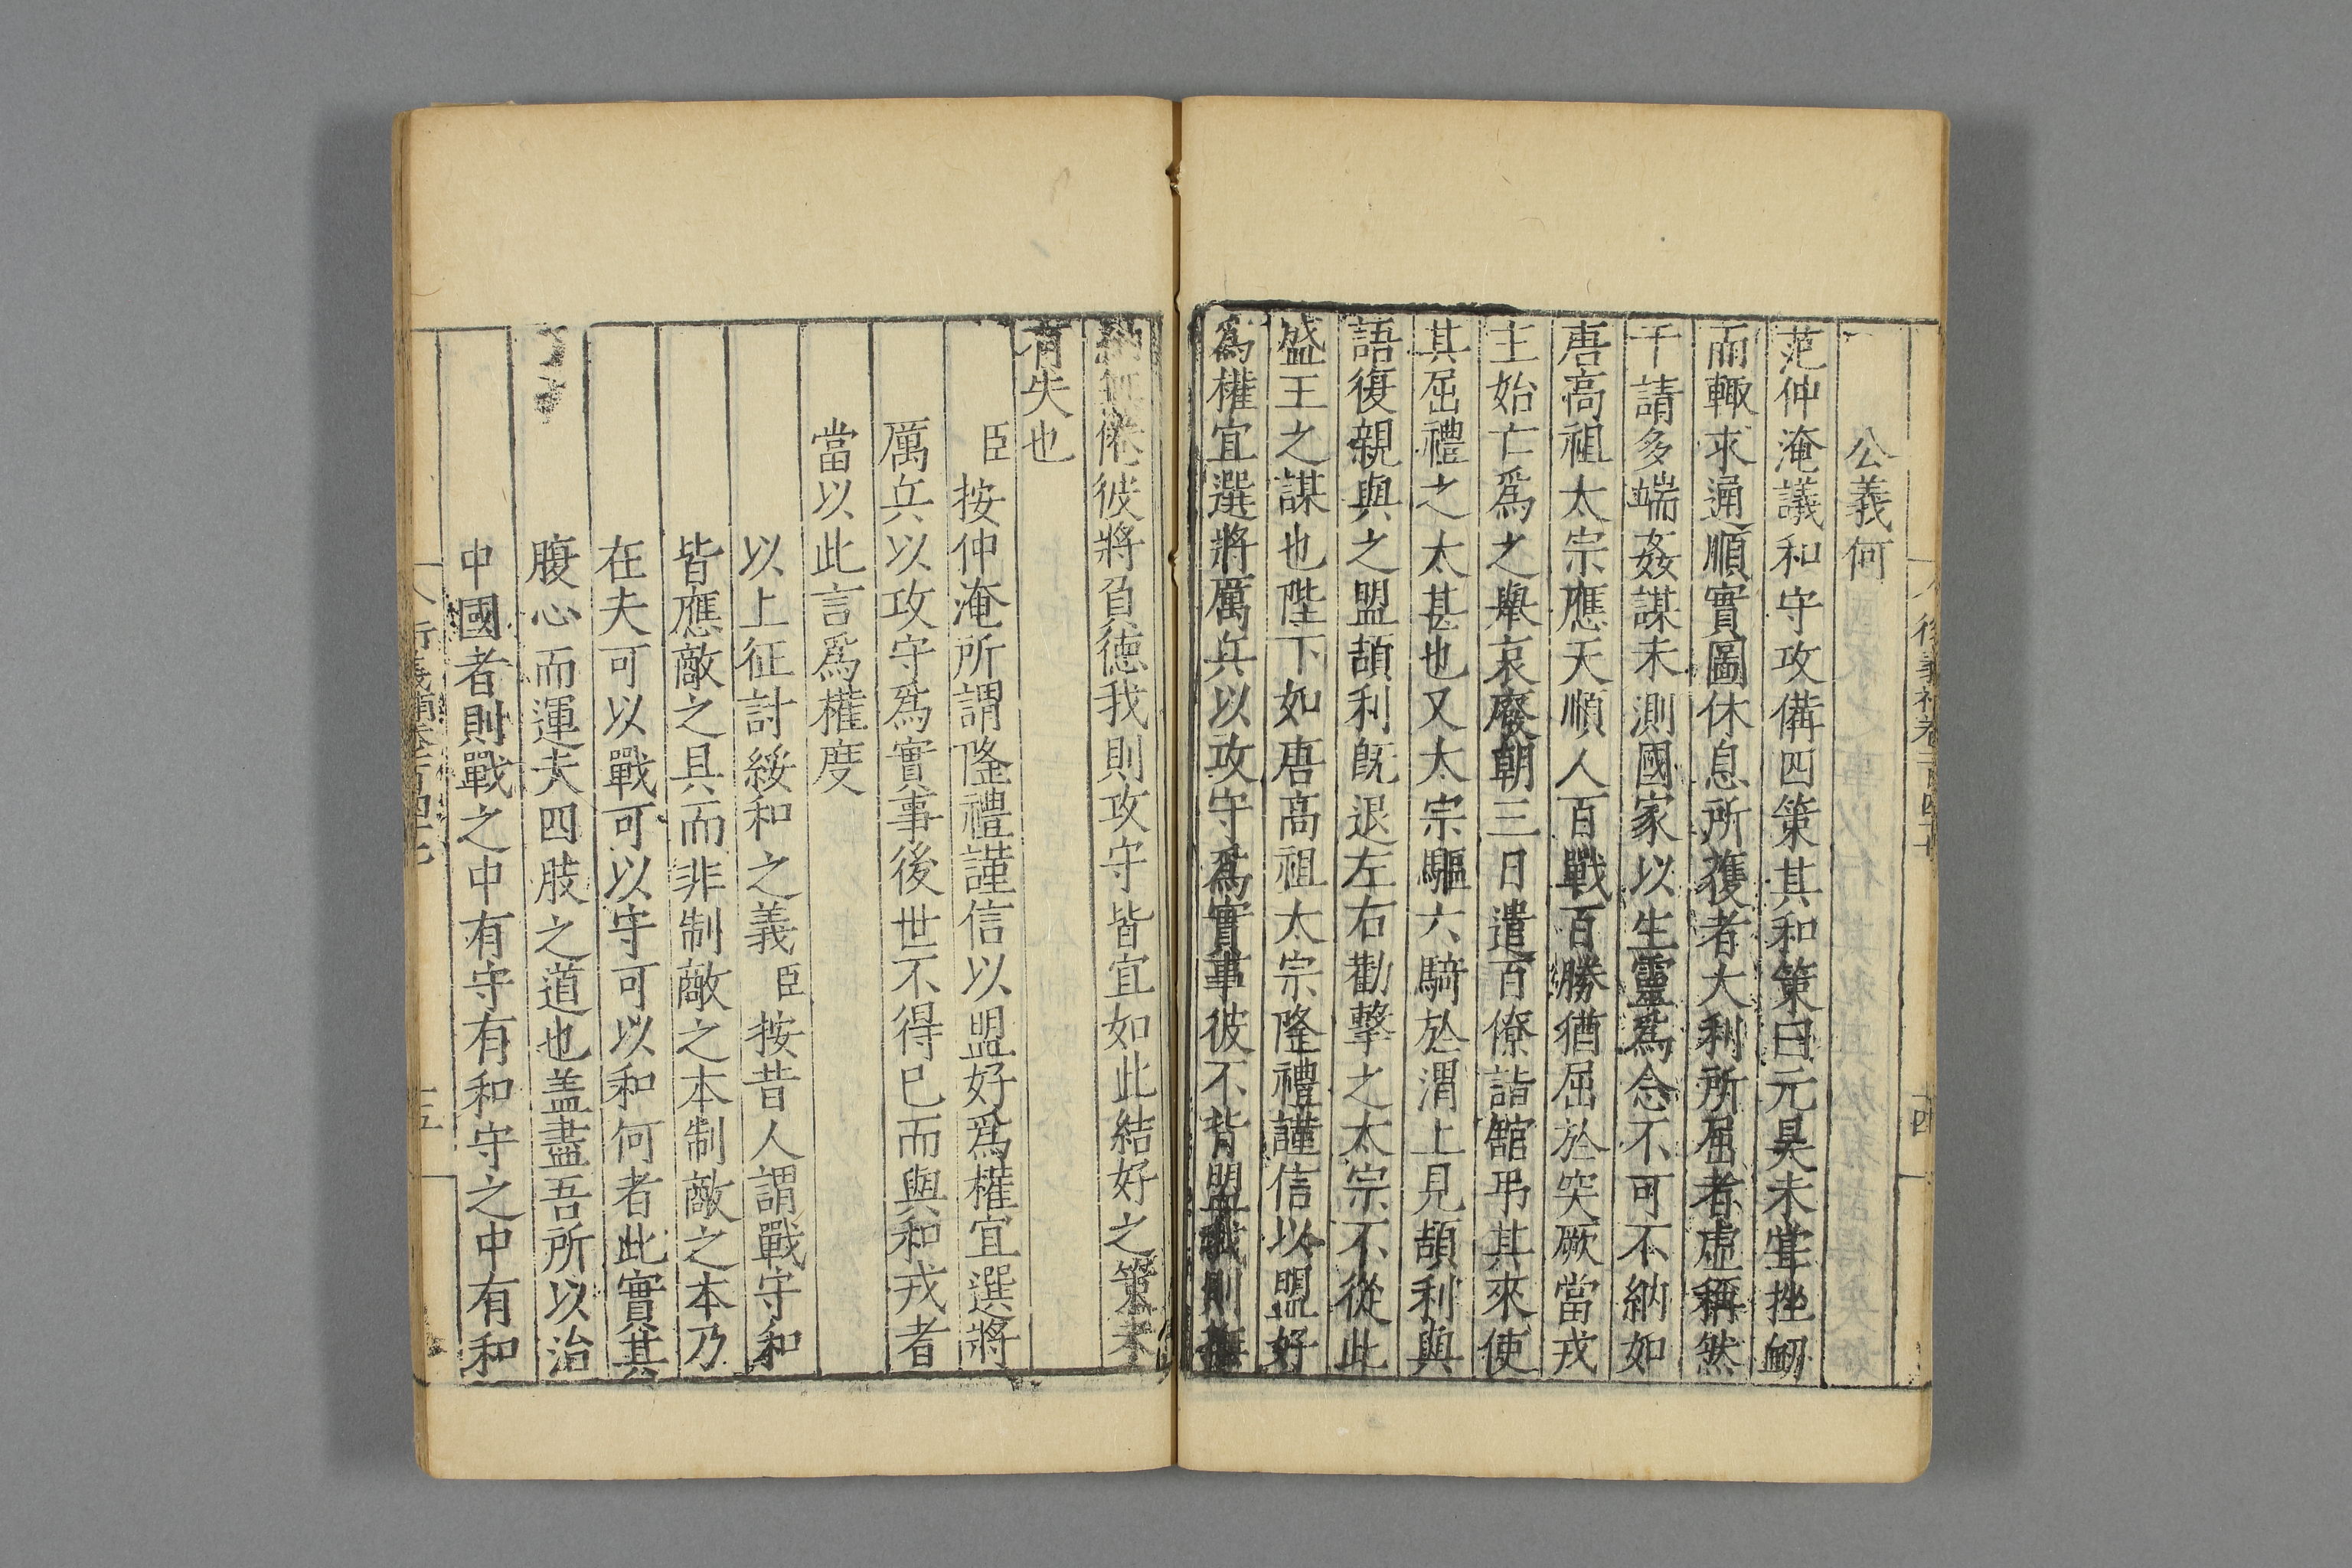 公義何
范仲淹議和守攻備四策其和策曰元昊未嘗挫衂
而輙求通順實圖休息所獲者大利所屈者虛稱然
干請多端姦謀未測國家以生靈爲念不可不納如
唐高祖太宗應天順人百戰百勝猶屈於突厥當戎
主始亡爲之舉哀廢朝三日遣百僚詣舘弔其來使
其屈禮之太甚也又太宗驅六騎於渭上見頡利與
語復親與之盟頡利旣退左右勸擊之太宗不從此
盛王之謀也陛下如唐高祖太宗隆禮謹信以盟好
爲權宜選將厲兵以攻守爲實事彼不背盟我則撫
納無倦彼將負德我則攻守皆宜如此結好之策未
有失也
臣按仲淹所謂隆禮謹信以盟好爲權宜選將
厲兵以攻守爲實事後世不得已而與和戎者
當以此言爲權度
以上征討綏和之義臣按昔人謂戰守和
皆應敵之具而非制敵之本制敵之本乃
在夫可以戰可以守可以和何者此實其
腹心而運夫四肢之道也盖盡吾所以治
中國者則戰之中有守有和守之中有和